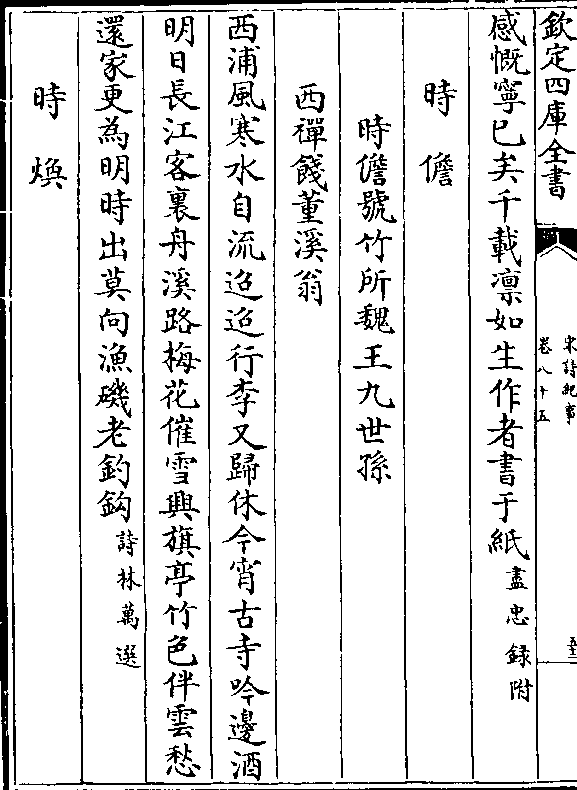 欽定四庫全書
宋詩紀事
卷八十五
感慨寧已矣千載凛如生作者書于紙盡忠録附
時儋
時儋號竹所魏王九世孫
西禪餞董溪翁
西浦風寒水自流迢迢行李又歸休今宵古寺吟邊酒
明日長江客裏舟溪路梅花催雪興旗亭竹色伴雲愁
還家更為明時出莫向漁磯老釣鈎詩林萬選
時煥